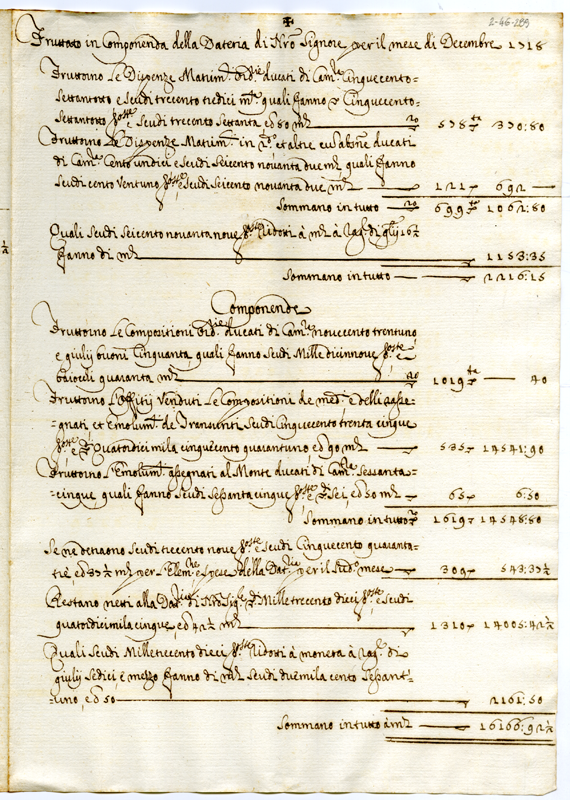 2-46-289
Fruttato in Componenda della Dateria di Nro Signore per il mese di Decembre 1718
Fruttoino Le Dispenze Matrim. Ord.rie ducati di Cam.ra Cinquecento-
settantotto e scudi trecento tredici m.ta quali fanno Cinquecento-
settantotto e scudi trecento settanta ed 80 m.ta 578 370:80
Fruttoino Le Dispenze Matrim. in et altre ducati
di Cam.ra Cento undici e scudi seicento novanta due m.ta quali fanno
scudi cento Ventuno scudi seicento novanta due m.ta 121 692
Sommano in tutto 699 1062:80
Quali scudi seicento novantanove Ridotti à m.ta à rag. di giulij 16½
fanno di m.ta 1153:35
Sommano in tutto 2216:15
Componende
Fruttoino Le Compositioni Ord.rie ducati di Cam.ra novecento trentuno
e giulij buoni Cinquanta, quali fanno scudi Mille dicinnove e
baiocchi quaranta m.ta 1019 40
Fruttoino L'Offitij Venduti Le Compositioni de med. e delli asse-
gnati et Emolum. de Transunti scudi cinquecento trenta cinque
Quatordici mila cinquecento quarantuno ed 90 m.ta 535 14541:90
Fruttoino L'Emolum. assegnati al Monte ducati di Cam.ra sessanta-
cinque, quali fanno scudi sei, ed 50 m.ta 65 6:50
Sommano in tutto 1619 14548:80
Se ne detraono scudi trecento nove e scudi Cinquecento quaranta-
trè ed 37½ m.ta per Elem.ne e spese della Dat.ria per il sud.o mese 309 543:37½
Restano netti alla Dat.ria di Nro Sig.re Mille trecento dieci e scudi
quatordici mila cinque, ed 42½ m.ta 1310 14005:42½
Quali scudi Mille trecento dieci Ridotti à moneta à rag. di
giulij sedici, e mezzo fanno di m.ta scudi due mila cento sessant'-
uno, ed 50 2161:50
Sommano in tutto à m.ta 16166:92½